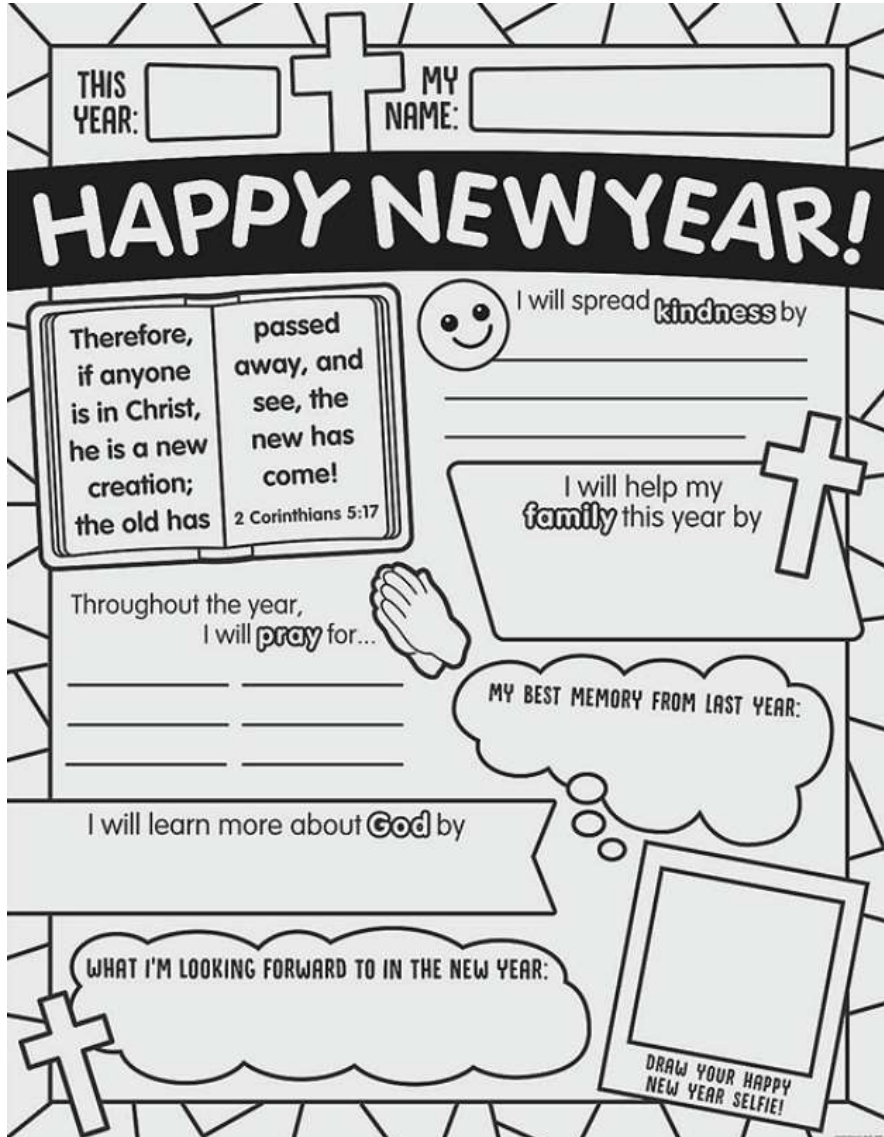 THIS
YEAR:
MY
NAME:
HAPPY NEW YEAR!
Therefore,
if anyone
is in Christ,
he is a new
creation;
the old has
passed
away, and
see, the
new has
come!
2 Corinthians 5:17
I will spread kindness by
I will help my
family this year by
Throughout the year,
I will pray for...
MY BEST MEMORY FROM LAST YEAR:
I will learn more about God by
WHAT I'M LOOKING FORWARD TO IN THE NEW YEAR:
DRAW YOUR HAPPY
NEW YEAR SELFIE!